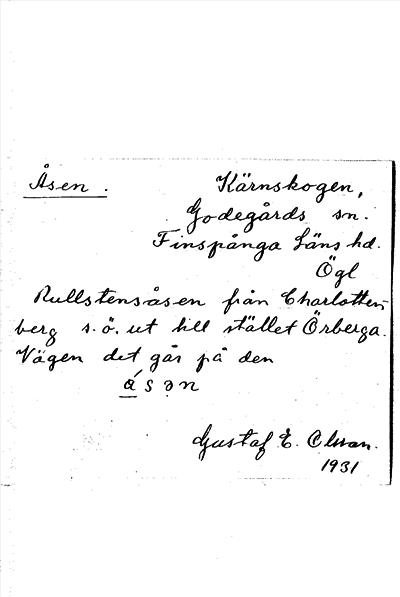 Åsen. Kärnskogen,
Godegårds sn.
Finspånga läns hd.
Ögl
Rullstensåsen från Charlotten-
berg s.ö. ut till stället Örberga.
Vägen det går på den
ásən
Gustaf E. Olsson.
1931